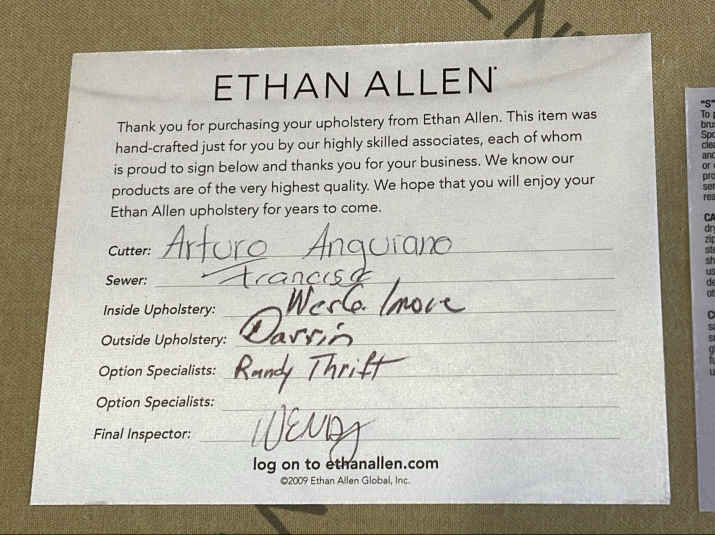 ETHAN ALLEN
Thank you for purchasing your upholstery from Ethan Allen. This item was
hand-crafted just for you by our highly skilled associates, each of whom
is proud to sign below and thanks you for your business. We know our
products are of the very highest quality. We hope that you will enjoy your
Ethan Allen upholstery for years to come.
Cutter: Arturo Anguiano
Sewer: Francisca
Inside Upholstery:
Outside Upholstery: Darrin
Option Specialists: Randy Thrift
Option Specialists:
Final Inspector: WENDy
log on to ethanallen.com
©2009 Ethan Allen Global, Inc.
"S"
To